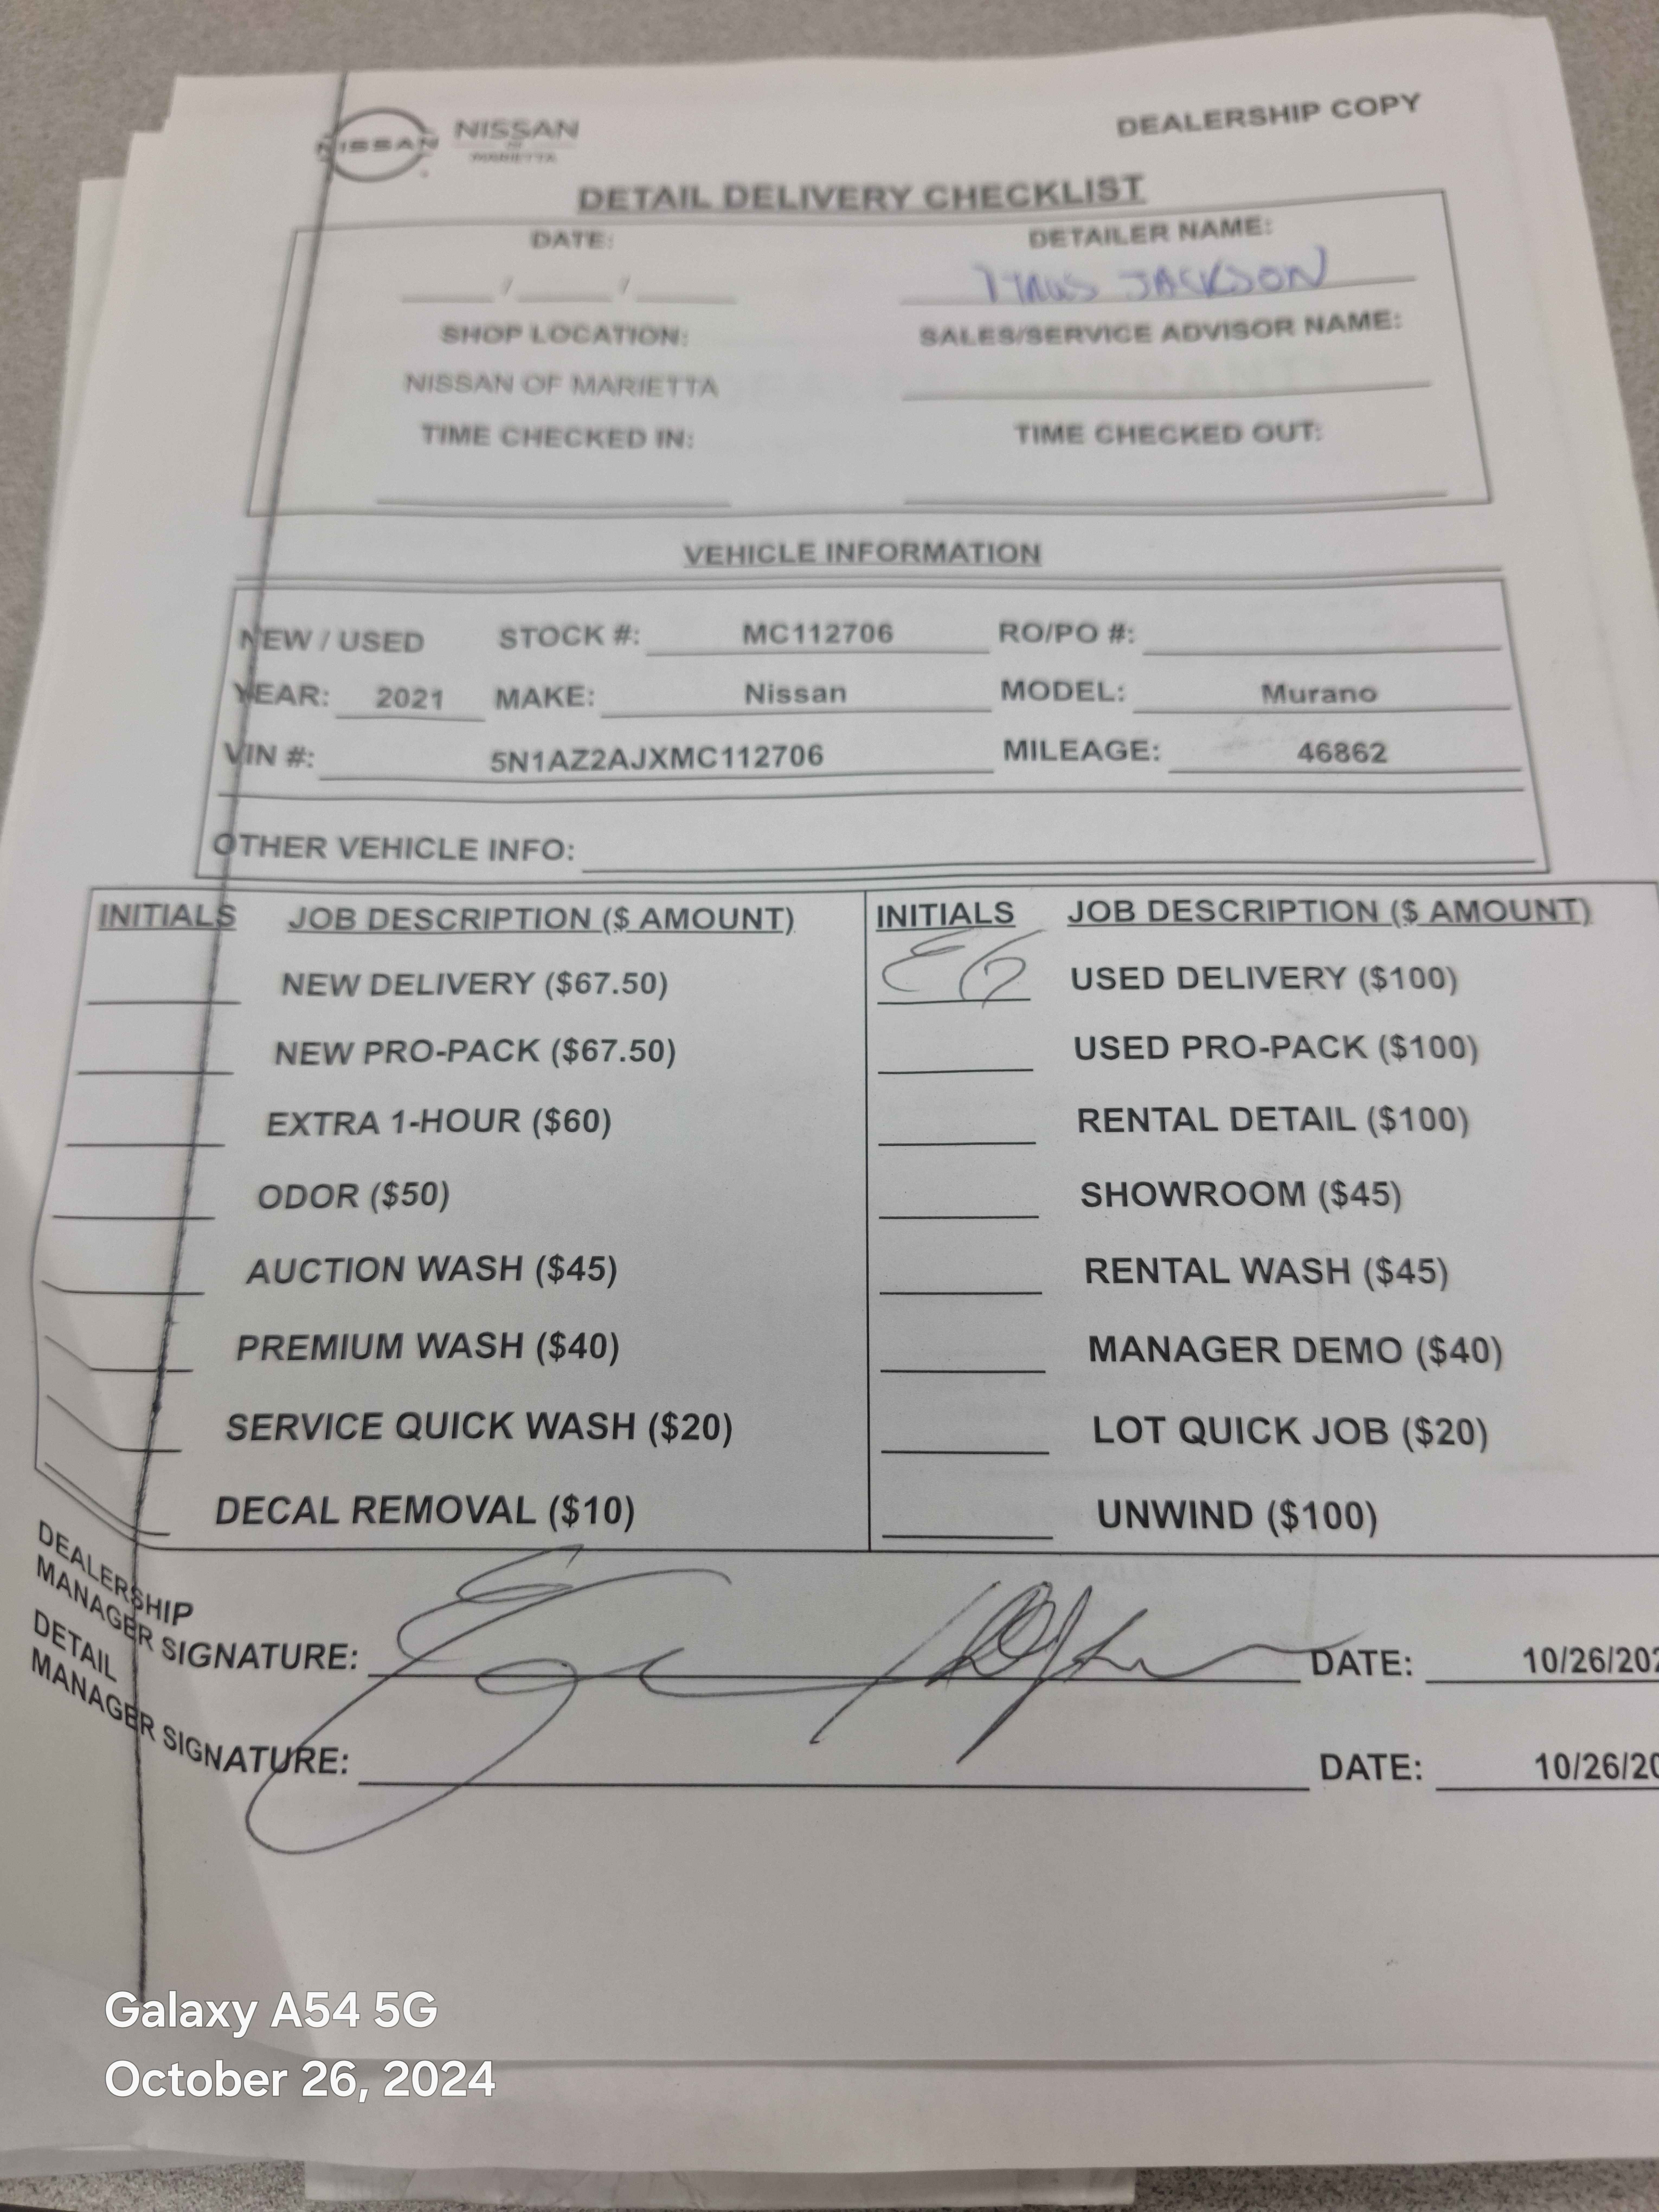 NISSAN NISSAN
OF
MARIETTA
DEALERSHIP COPY
DETAIL DELIVERY CHECKLIST
DATE: DETAILER NAME:
/ / JACKSON
SHOP LOCATION: SALES/SERVICE ADVISOR NAME:
NISSAN OF MARIETTA
TIME CHECKED IN: TIME CHECKED OUT:
VEHICLE INFORMATION
NEW / USED STOCK #: MC112706 RO/PO #:
YEAR: 2021 MAKE: Nissan MODEL: Murano
VIN #: 5N1AZ2AJXMC112706 MILEAGE: 46862
OTHER VEHICLE INFO:
INITIALS JOB DESCRIPTION ($ AMOUNT) INITIALS JOB DESCRIPTION ($ AMOUNT)
NEW DELIVERY ($67.50) EG USED DELIVERY ($100)
NEW PRO-PACK ($67.50) USED PRO-PACK ($100)
EXTRA 1-HOUR ($60) RENTAL DETAIL ($100)
ODOR ($50) SHOWROOM ($45)
AUCTION WASH ($45) RENTAL WASH ($45)
PREMIUM WASH ($40) MANAGER DEMO ($40)
SERVICE QUICK WASH ($20) LOT QUICK JOB ($20)
DECAL REMOVAL ($10) UNWIND ($100)
DEALERSHIP
MANAGER SIGNATURE: DATE: 10/26/202
DETAIL
MANAGER SIGNATURE: DATE: 10/26/20
Galaxy A54 5G
October 26, 2024